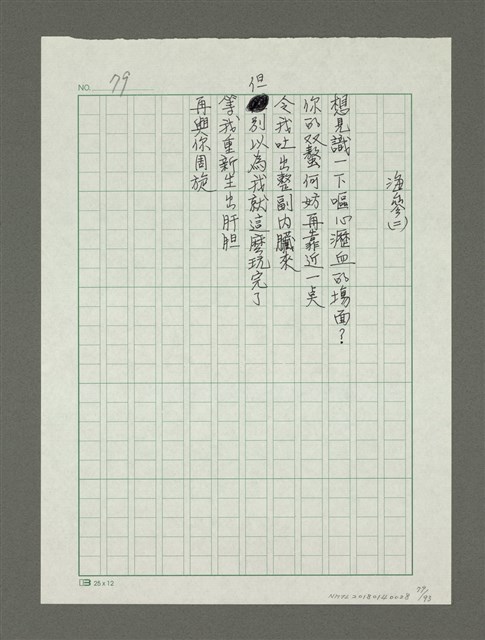 NO. 79
海參(二)
想見識一下嘔心瀝血的場面?
你的双螯何妨再靠近一点
令我吐出整副内臟來
但別以為我就這麼玩完了
等我重新生出肝胆
再與你周旋
25 x 12
NMTL20180140008
79/93